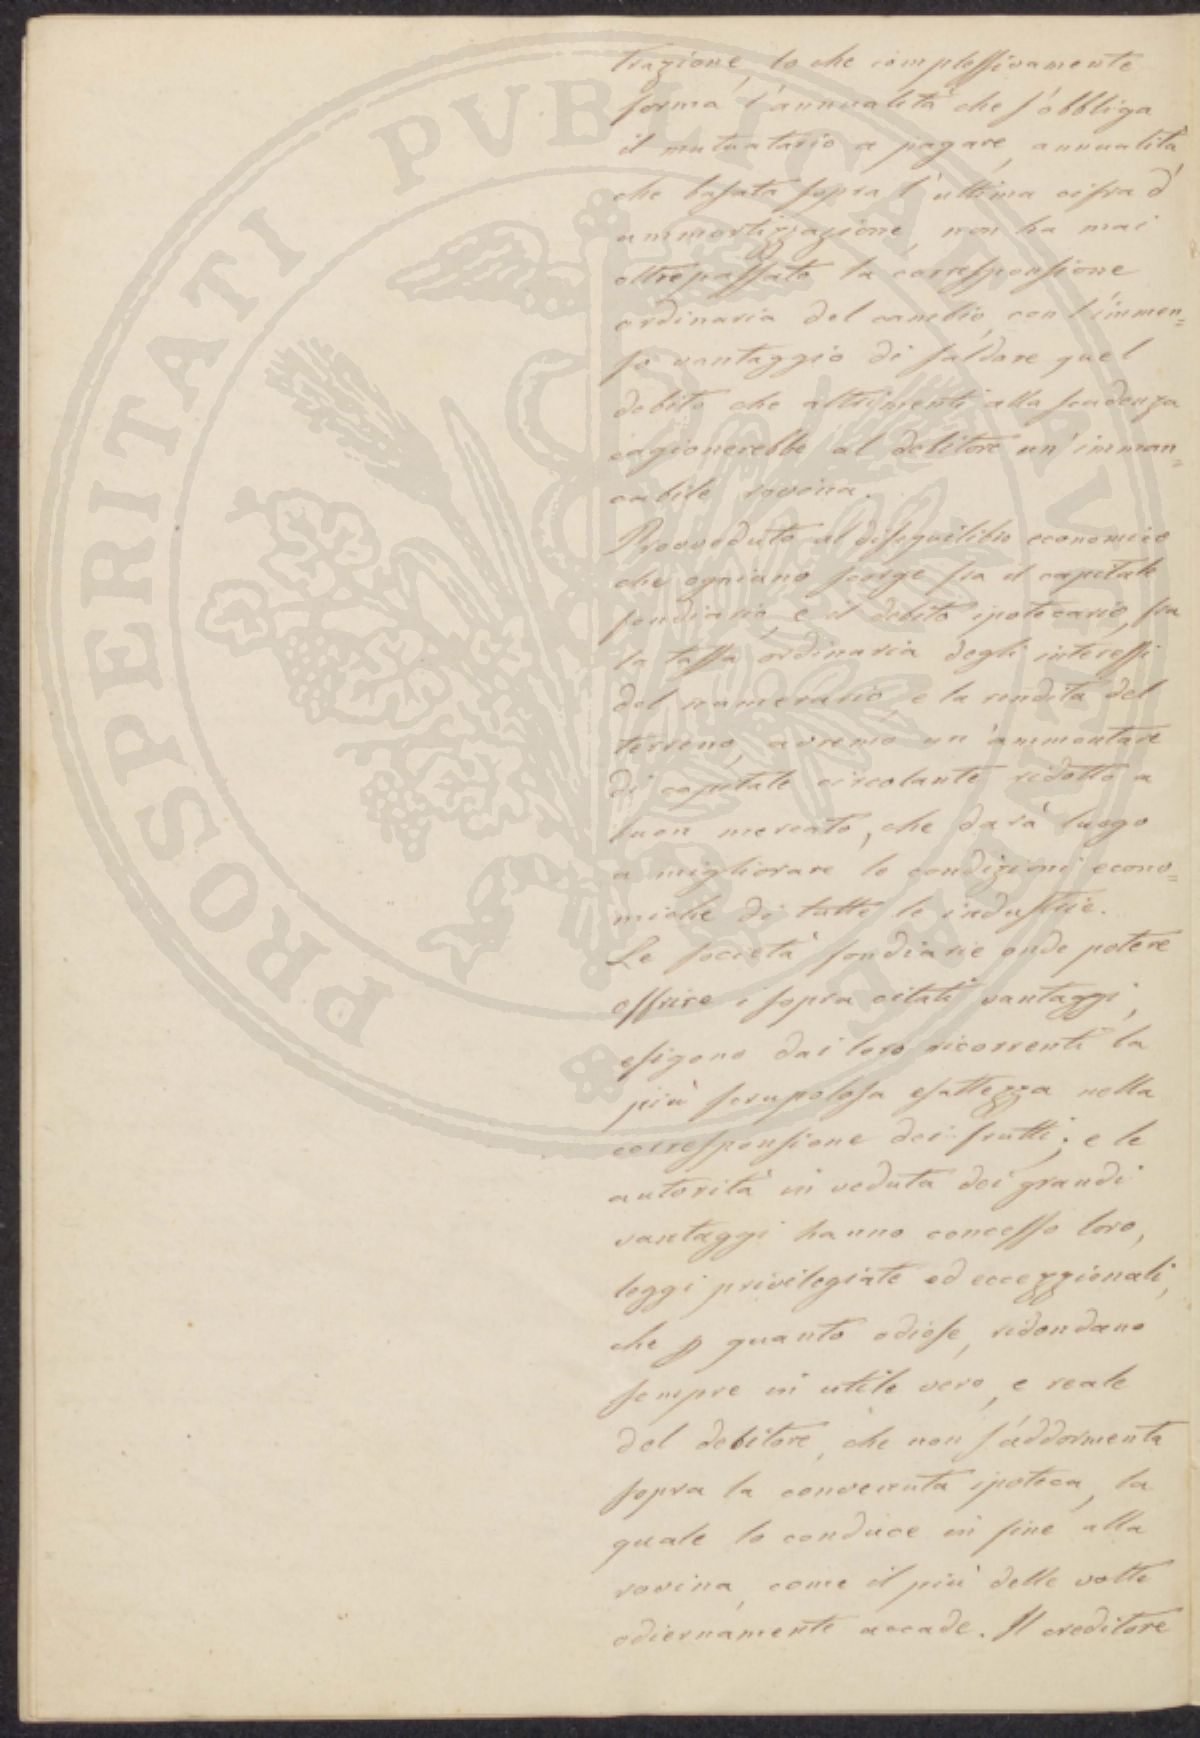 trazione, lo che complessivamente
forma l'annualità che s'obbliga
il mutuatario a pagare, annualità,
che basata sopra l'ultima cifra d'
ammortizzazione, non ha mai
oltrepassato la corresponsione
ordinaria del cambio, con l'immen=
so vantaggio di saldare quel
debito che altrimenti alla scadenza
cagionerebbe al debitore un'imman=
cabile rovina.
Provveduto al disequilibrio economico
che ogniano scorge fra il capitale
fondiario, e il debito ipotecario, fra
la tassa ordinaria degli interessi
del numerario, e la rendita del
terreno, avremo un'ammontare
di capitale circolante ridotto a
buon mercato, che darà luogo
a migliorare le condizioni econo=
miche di tutte le industrie.
Le società fondiarie onde potere
offrire i sopra citati vantaggi,
esigono dai loro ricorrenti la
più scrupolosa esattezza nella
corresponsione dei frutti; e le
autorità in veduta dei grandi
vantaggi hanno concesso loro,
leggi privilegiate ed eccezzionali,
che p quanto odiose, ridondano
sempre in utile vero, e reale
del debitore, che non s'addormenta
sopra la convenuta ipoteca, la
quale lo conduce in fine alla
rovina, come il più delle volte
odiernamente accade. Il creditore
PROSPERITATI PVBLICAE